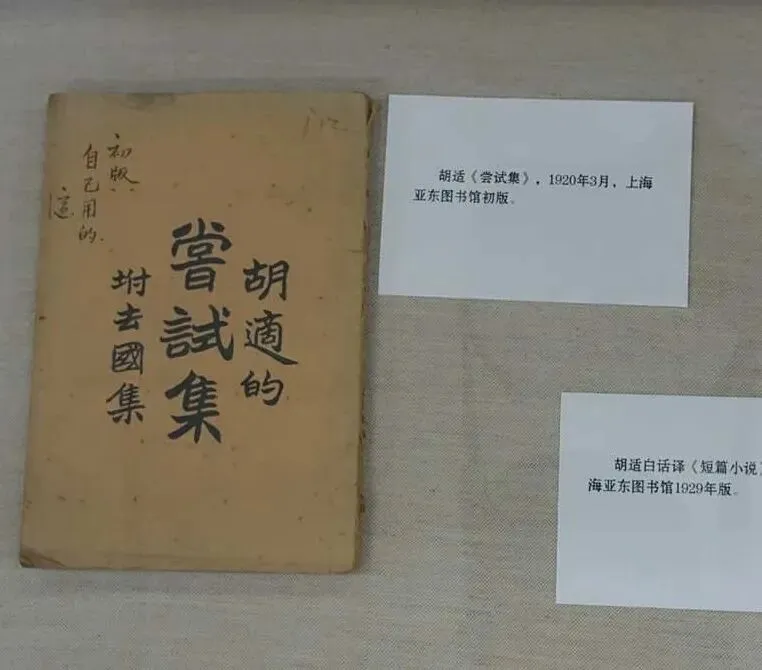 胡適的
嘗試集
坿去國集
初版
自己用的
適
胡适《尝试集》，1920年3月，上海
亚东图书馆初版。
胡适白话译《短篇小说》
海亚东图书馆1929年版。